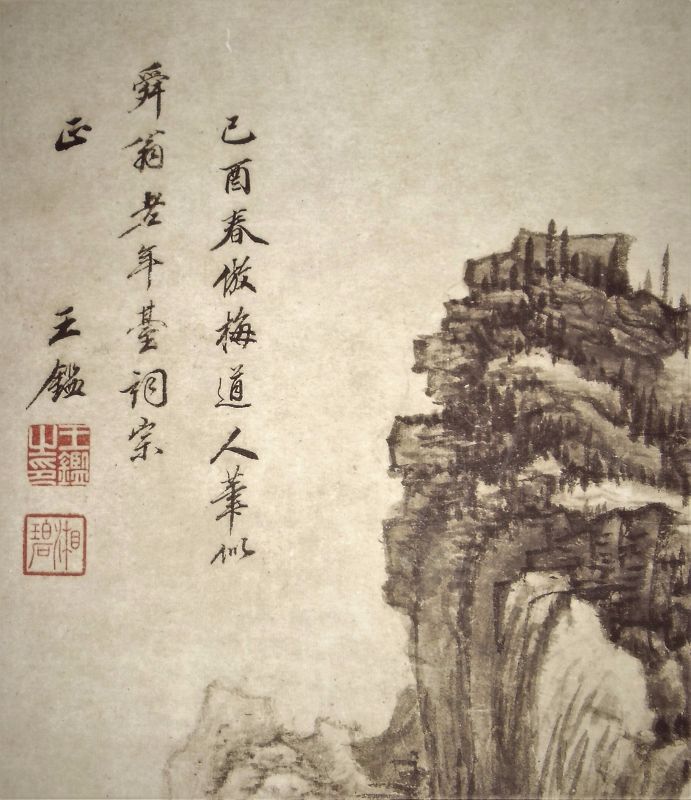 己酉春倣梅道人筆似
舜翁老年臺詞宗
正　王鑑
王鑑之印
湘碧